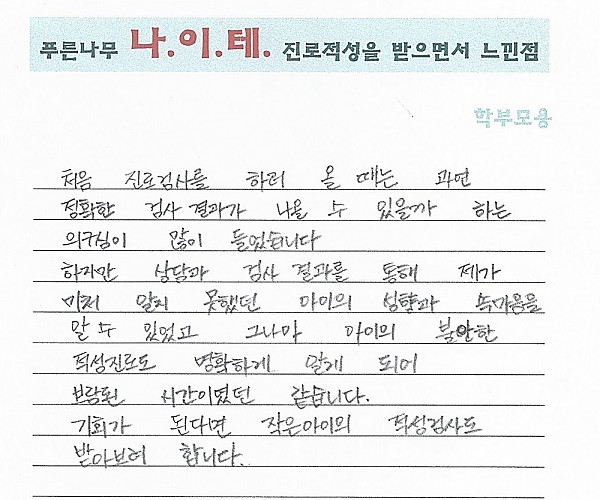 푸른나무 나.이.테. 진로적성을 받으면서 느낀점
학부모용
처음 진로검사를 하러 올 때는 과연
정확한 검사 결과가 나올 수 있을까 하는
의구심이 많이 들었습니다
하지만 상담과 검사 결과를 통해 제가
미처 알지 못했던 아이의 성향과 속마음을
알 수 있었고 그나마 아이의 불안한
적성진로도 명확하게 알게 되어
보람된 시간이였던 같습니다.
기회가 된다면 작은아이의 적성검사도
받아보려 합니다.